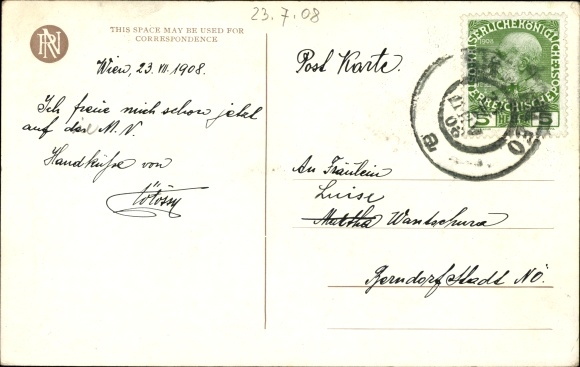 23.7.08
RN
THIS SPACE MAY BE USED FOR
CORRESPONDENCE
Wien, 23. VII. 1908.
Ich freue mich schon jetzt
auf die M. V.
Handküsse von
Post Karte.
An Fräulein
Luise
Martha Wantschura
Berndorf Stadt NÖ.
1908
5 HELLER 5